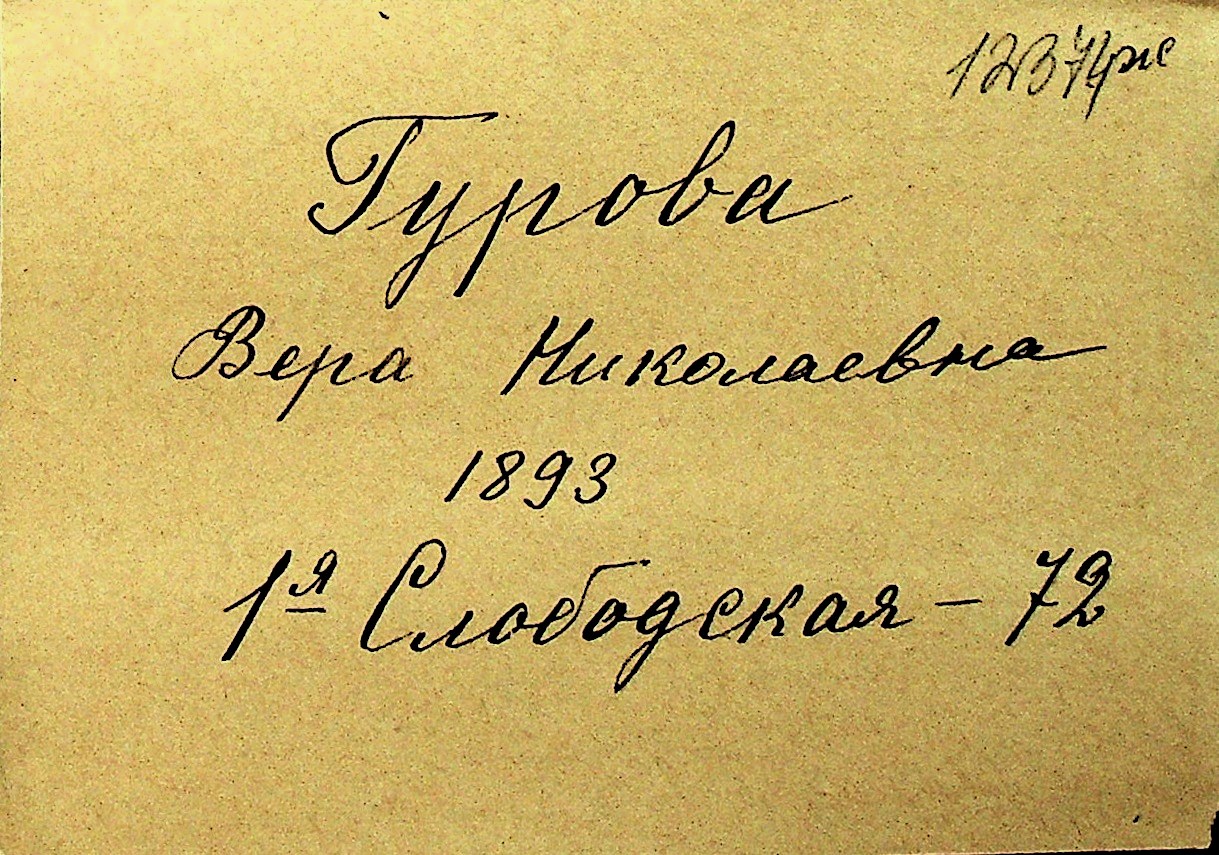 12374ж
Гурова
Вера Николаевна
1893
1я Слободская - 72